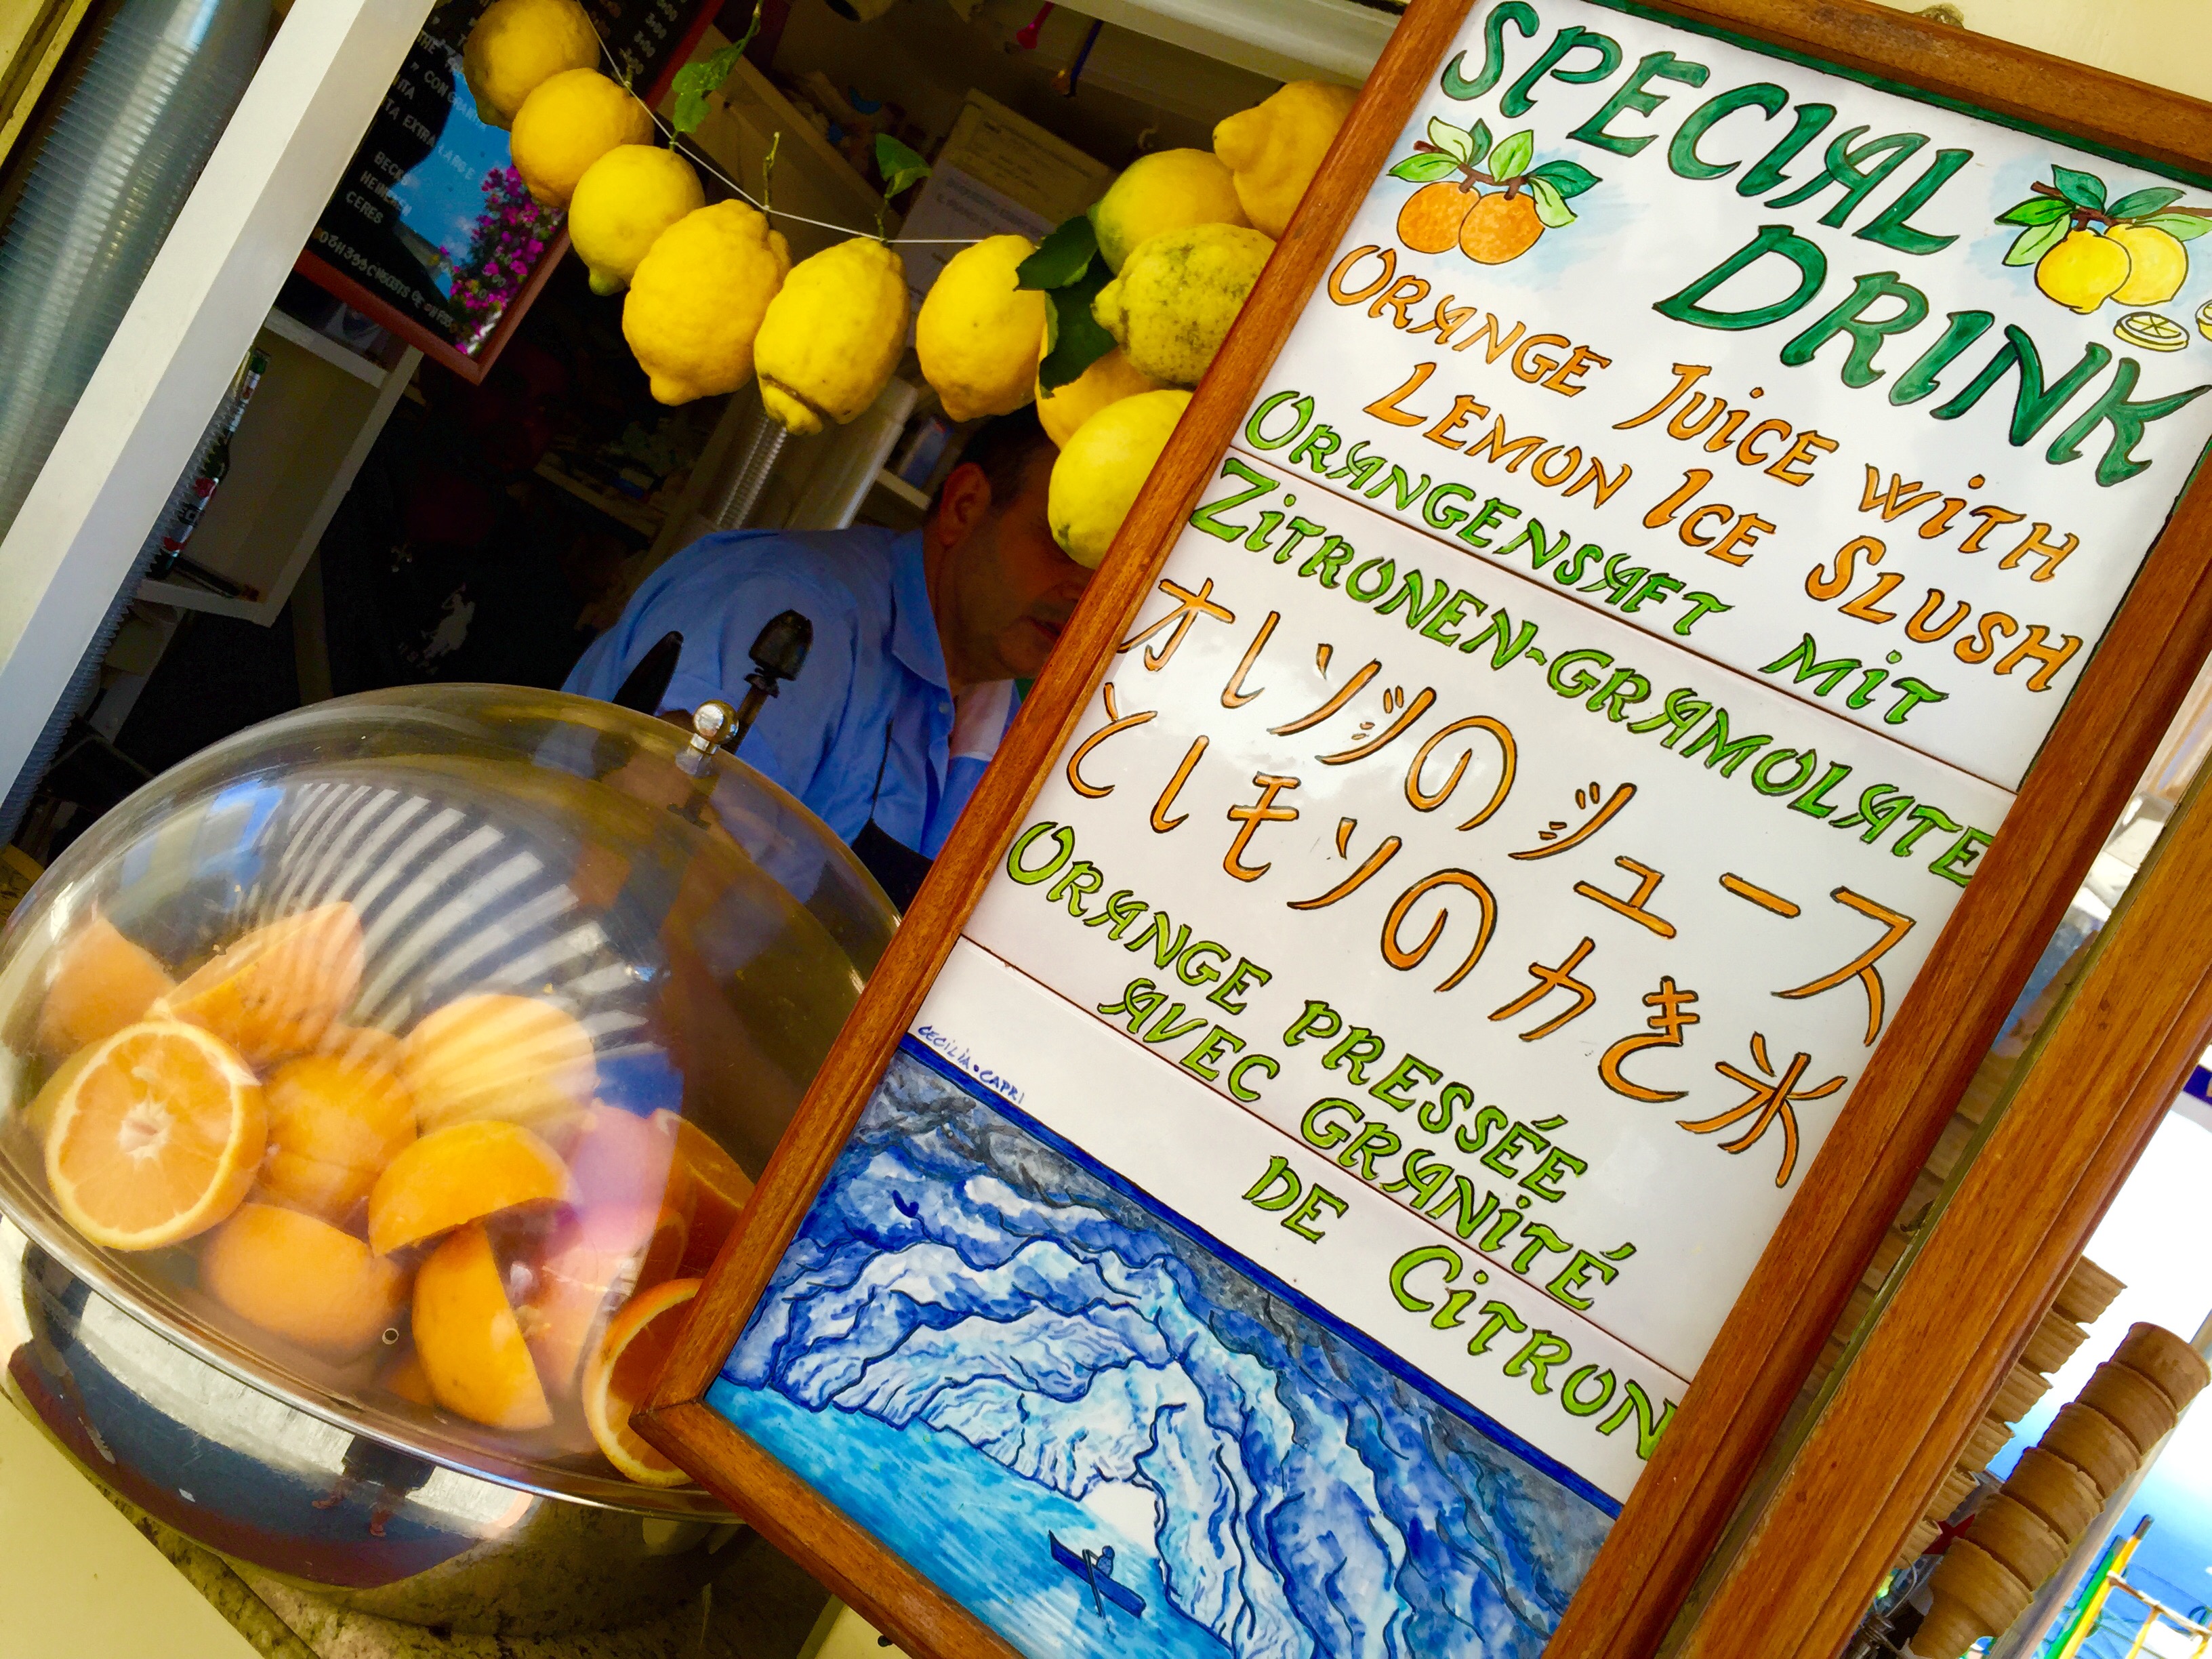 SPECIAL
DRINK
ORANGE JUICE WITH
LEMON ICE SLUSH
ORANGENSAFT MIT
ZITRONEN-GRAMOLATE
オレンジのジュース
とレモンのカき氷
ORANGE PRESSÉE
AVEC GRANITÉ
DE CITRON
CECILIA • CAPRI
EXTRA LARGE
HEINEKEN
CERES